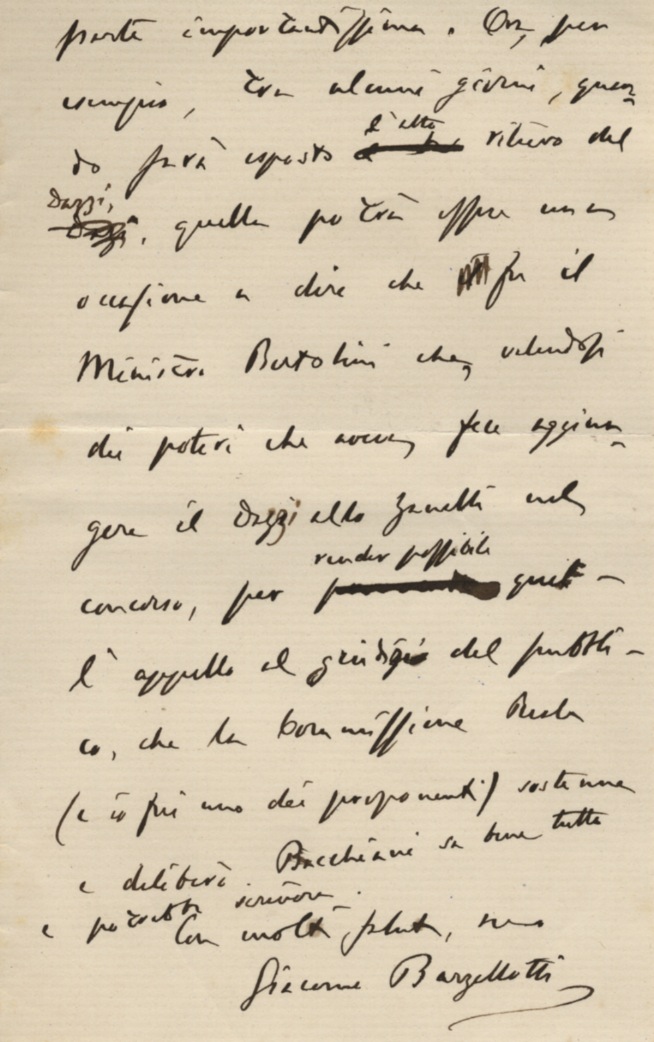 parte importantissima. Ora, per
esempio, tra alcuni giorni, quan=
do sarà esposto l'alto rilievo del
Dazzi, quella potrà offrire una
occasione a dire che fu il
Ministro Bertolini che, valendosi
dei poteri che aveva, fece aggiun=
gere il Dazzi allo Zanelli nel
concorso, per render possibile quel-
l'appello al giudizio del pubbli-
co, che la Commissione Reale
(e io fui uno dei proponenti) sostenne
e deliberò. Bacchiani sa bene tutto
e potrebbe scrivere.
Con molti saluti, suo
Giacomo Barzellotti